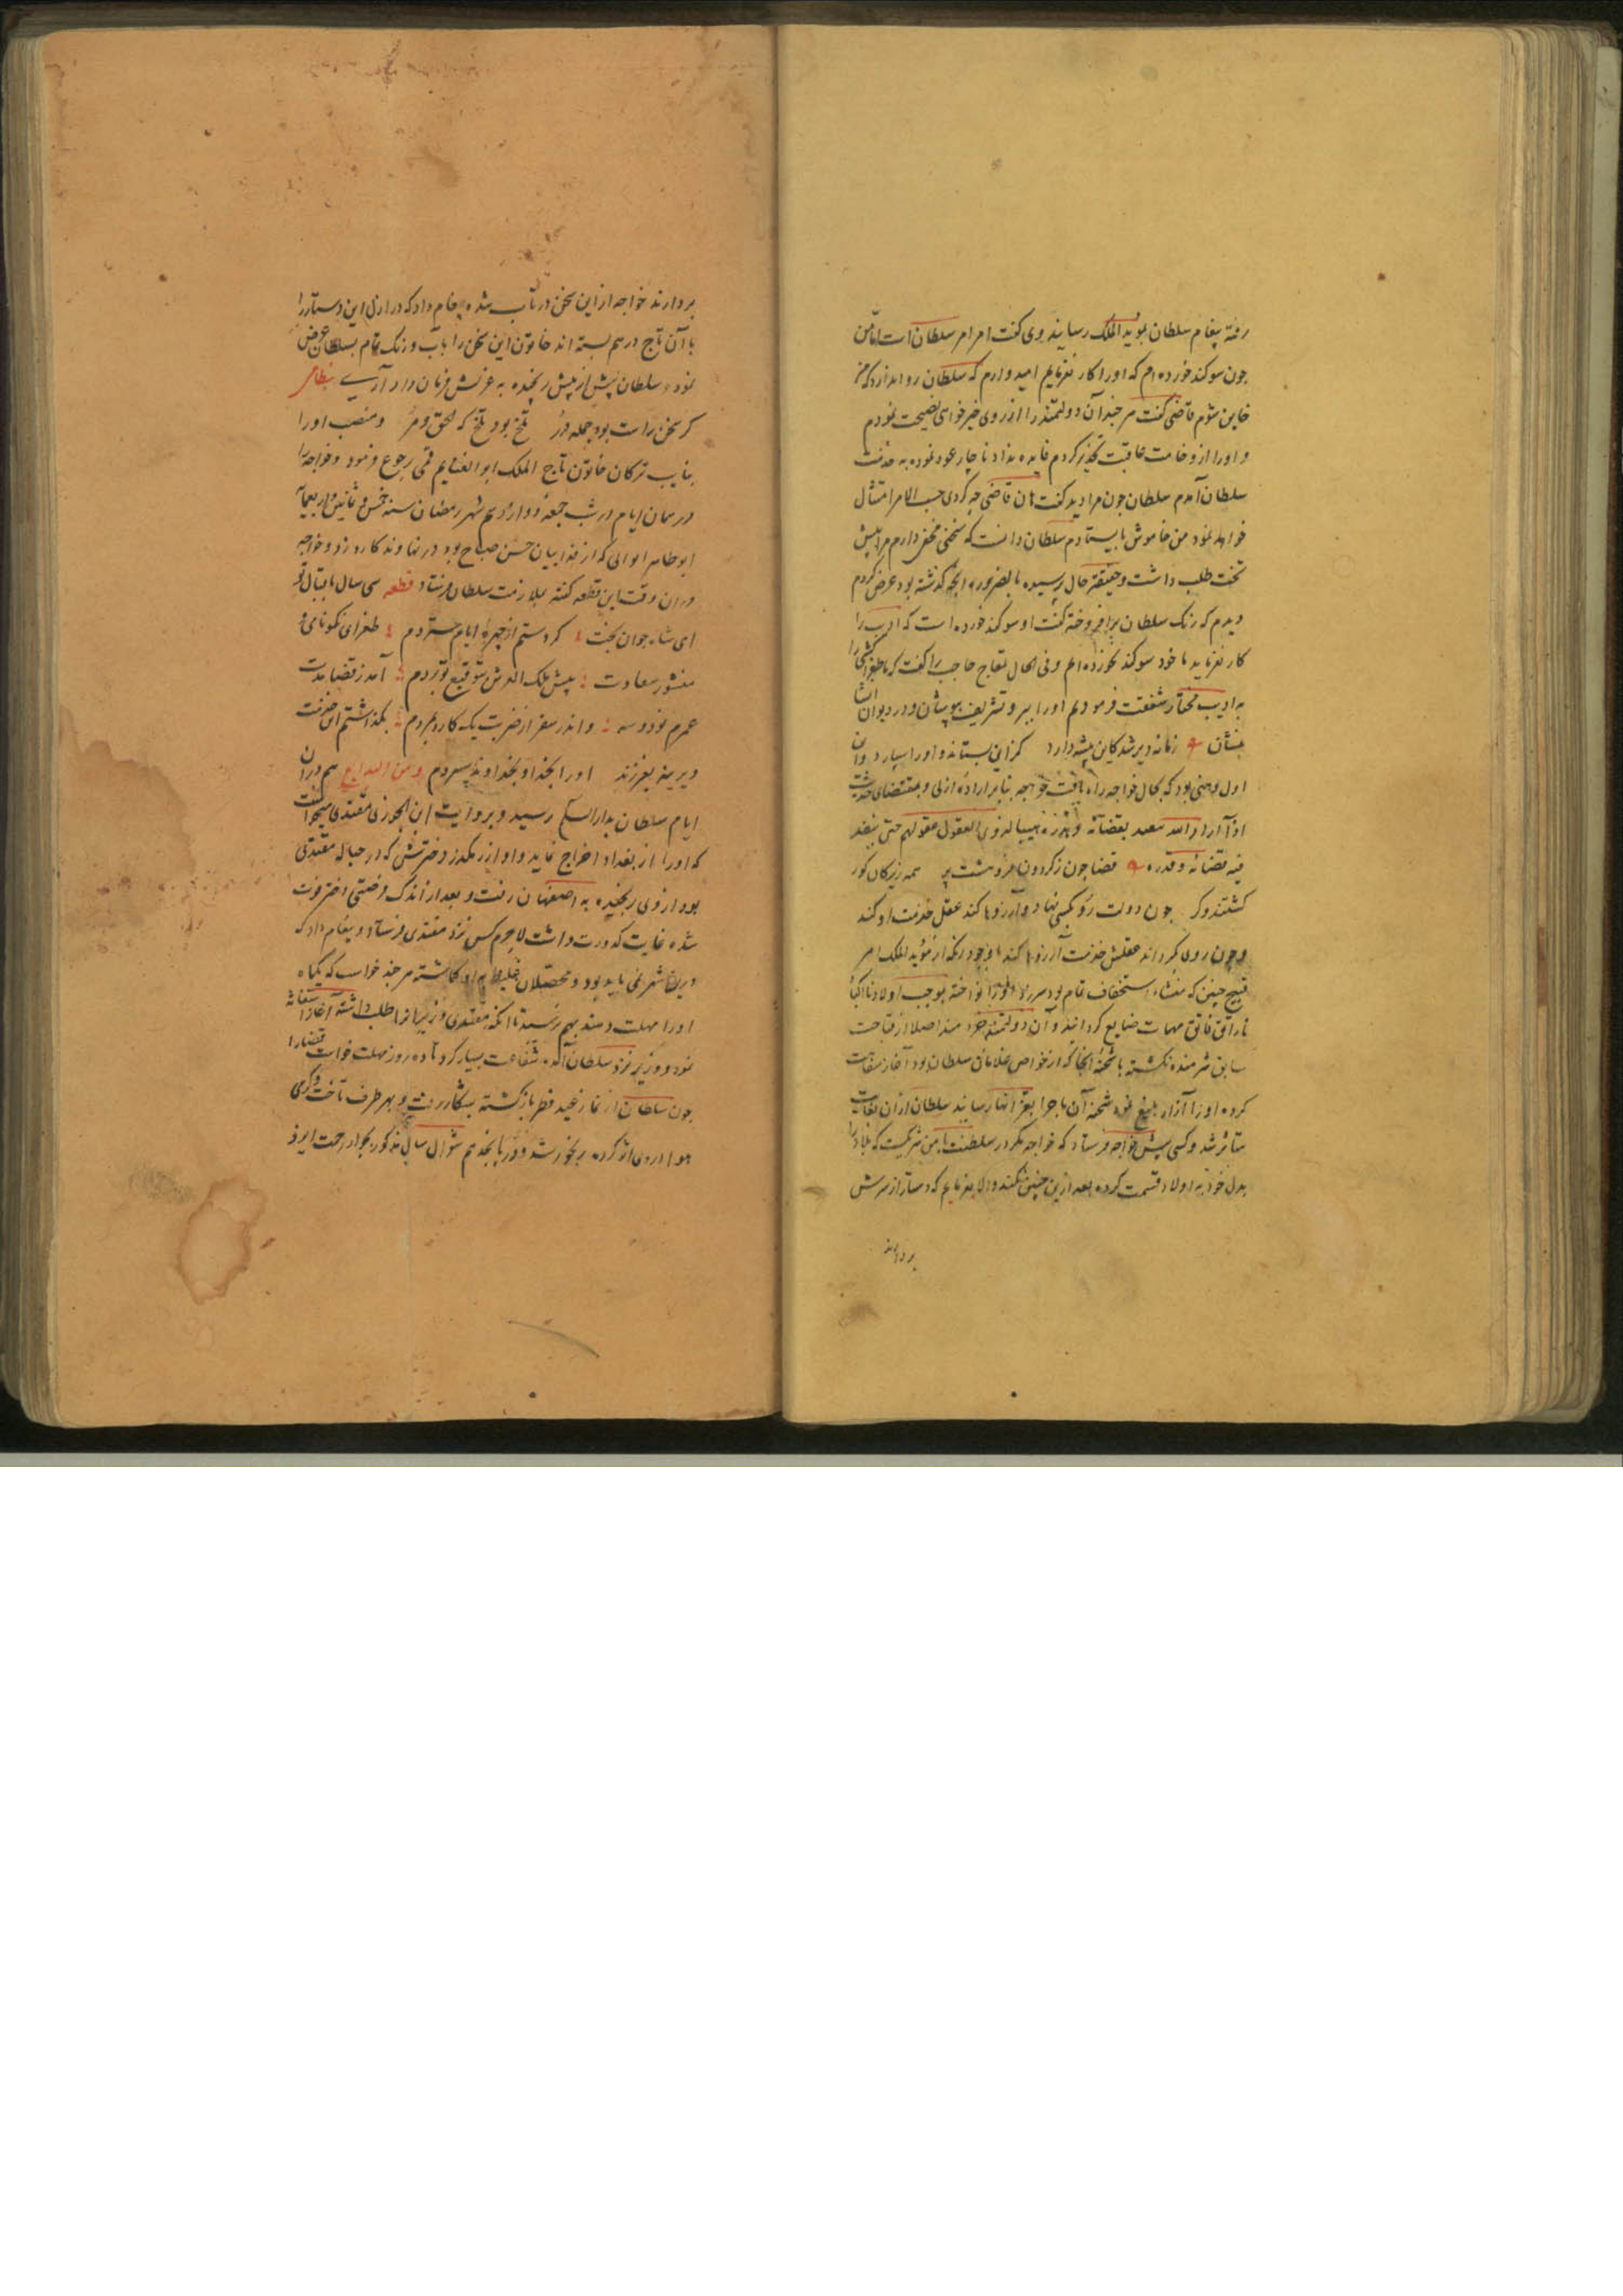 رفته پیغام سلطان بمؤید الملک رسانید وی کفت امر امر سلطان است اما من
جون سوکند خورده‌ام که او را کار نفرمایم امید وارم که سلطان روا ندارد که من
خاین شوم قاضی کفت هر جند آن دولتمند را از روی خیرخواهی نصیحت نمودم
و او را از وخامت عاقبت تحذیر کردم فایده نداد ناچار عود نموده به خدمت
سلطان آمدم سلطان جون مرا دید کفت هان قاضی جه کردی حسب الامر امتثال
خواهد نمود من خاموش بایستادم سلطان دانست که سخنی مخفی دارم مرا پیش
تخت طلب داشت و حقیقة حال پرسیده بالضروره انجه کذشته بود عرض کردم
دیدم که رنک سلطان برافروخته کفت او سوکند خورده است که ادیب را
کار نفرماید ما خود سوکند نخورده‌ایم و فی الحال بتاج حاجب را کفت که ما طغرا کشی را
به ادیب مختار شفقت فرمودیم او را ببر و تشریف بپوشان و در دیوان انشا
بنشان زمانه دیر شد کاین پیشه دارد کز این بستاند و او را سپارد و این
اول وهنی بود که بحال خواجه راه یافت خواجه بنابر اراده ازلی و بمقتضای حدیث
اذا اراد الله بعبد بقضائه و قدره سلب لذوی العقول عقولهم حتی ینفذ
فیه قضائه و قدره قضا چون ز کردون فروهشت پر همه زیرکان کور
کشتند و کر جون دولت رو بکسی نهاد و آرزوها کند عقل خدمت او کند
و جون روی کرداند عقلش خدمت آرزوها کند با وجود انکه از مؤید الملک امر
قبیح جنین که منشاء استخفاف تمام بود سرزد او را نواخته بموجب اولادنا اکبادنا
تا راتق فاتق مهمات ضایع کردانید و آن دولتمند خود منداصلا از قباحت
سابق شرمنده نکشته با شحنه انجا که از خواص غلامان سلطان بود آغاز سفاهت
کرده او را آزار بلیغ نمود شحنه آن ماجرا بعز انهار رسانید سلطان از ان بغایت
متأثر شد و کسی پیش خواجه فرستاد که خواجه مکر در سلطنت با من شریکیست که بلاد را
بدل خود به اولاد قسمت کرده بعد ازین جنین نکند والا بفرمایم که دستار از سرش
بردارند
بردارند خواجه از این سخن در تاب شده پیغام داد که در ازل این دستار را
با آن تاج در هم بسته اند خاتون این سخن را بآب و رنک تمام بسلطان عرض
نمود سلطان پیش از پیش رنجیده به عزلش فرمان داد آری نظامی
کر سخن راست بود جمله در تلخ بود تلخ که الحق مر و منصب او را
بنایب ترکان خاتون تاج الملک ابو الغنایم قمی رجوع فرمود و خواجه را
در همان ایام در شب جمعه دوازدهم شهر رمضان سنه خمس و ثمانین و اربعمایه
ابو طاهر اوانی که از فداییان حسن صباح بود در نهاوند کارد زد و خواجه
در ان وقت این قطعه کفته بملازمت سلطان فرستاد قطعه سی سال باقبال تو
ای شاه جوان بخت کرد ستم از جهره ایام ستردم طغرای نکونامی و
منشور سعادت پیش ملک العرش بتوقیع تو بردم آمد ز قضا مدت
عمرم نود و سه و اندر سفر از ضربت یک کارد بمردم بکذاشتم این خدمت
دیرینه بفرزند او را بخدا و بخداوند سپردم ومن البدایع هم در ان
ایام سلطان بدار السلام رسید و بروایت ابن الجوزی مقتدی میخواست
که او را از بغداد اخراج نماید و او از رهکذر دخترش که در حباله مقتدی
بود از وی رنجیده به اصفهان رفت و بعد از اندک وقتی دختر فوت
شده غایت کدورت داشت لاجرم کس نزد مقتدی فرستاد و پیغام داد که
درین شهر نمی باید بود و محصلان غلیظ بر او کماشته هر جند خواست که یکماه
او را مهلت دهند بهم نرسید تا انکه مقتدی وزیر انرا طلب داشته آغاز استغاثه
نمود و وزیر نزد سلطان آمده شفاعت بسیار کرد تا ده روز مهلت خواست قضا را
جون سلطان از نماز عید فطر بازکشته بشکار رفت و بهر طرف تاخت و کرمی
هوا در وی اثر کرده رنجور شد و روز پانجدهم شوال سال مذکور بجوار رحمت ایزد